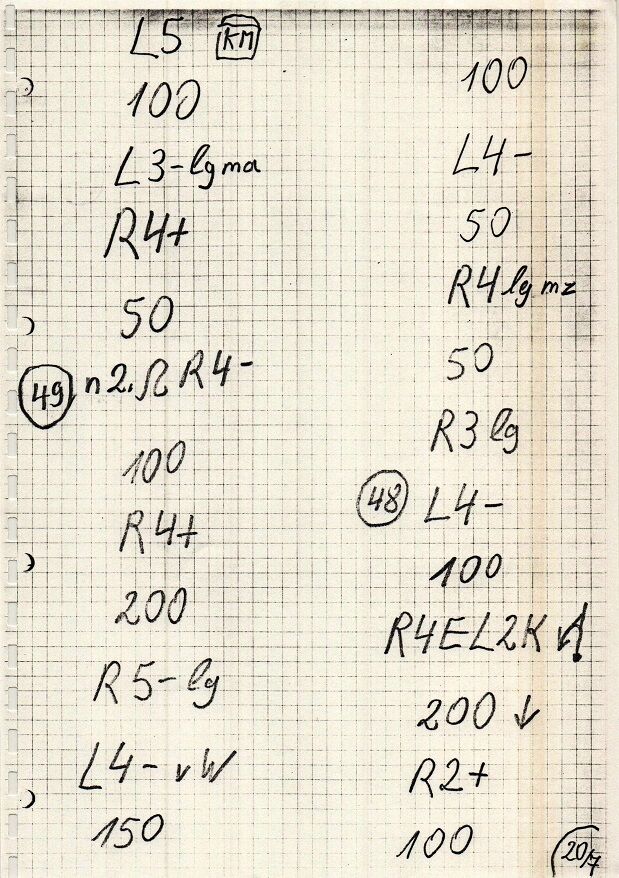 L5 KM
100
L3-lgma
R4+
50
49 n2.Ω R4-
100
R4+
200
R5-lg
L4-vW
150
100
L4-
50
R4lgmz
50
R3lg
48 L4-
100
R4EL2K
200 ↓
R2+
100
20/7